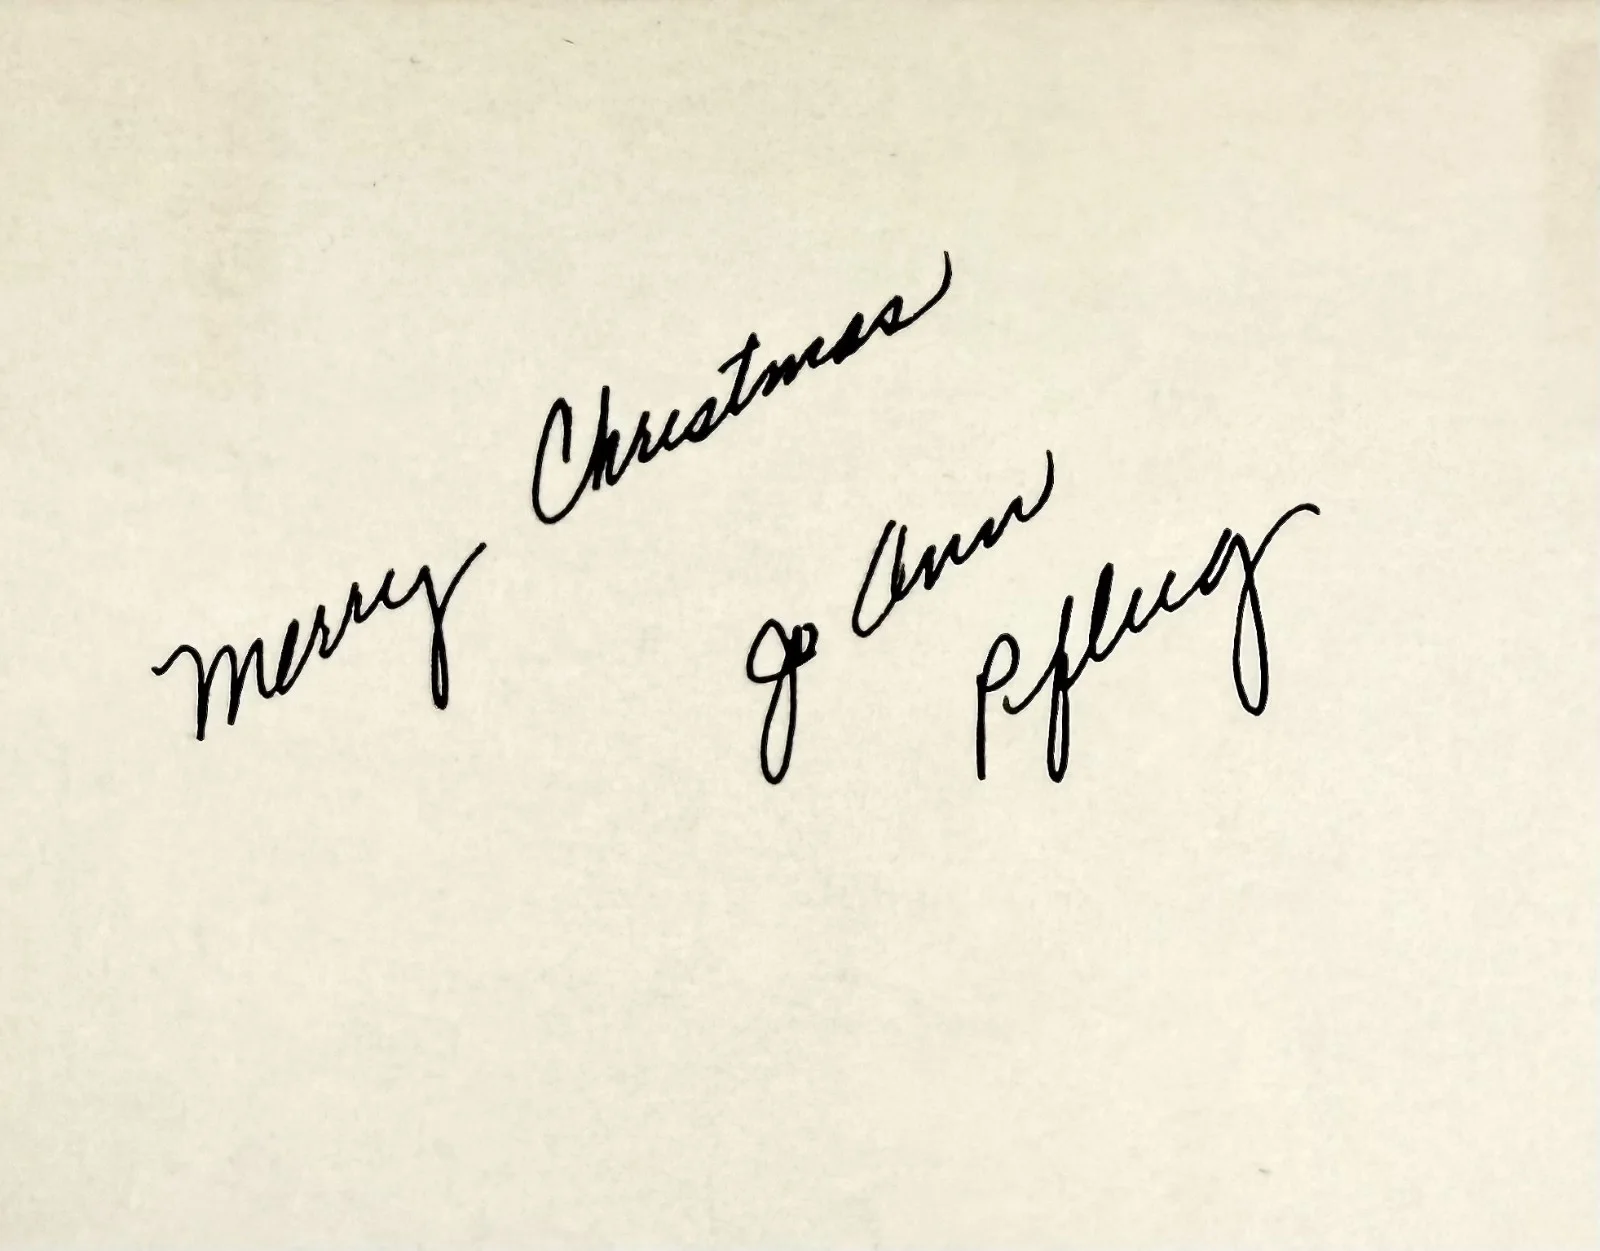 Merry Christmas
Jo Ann
Pflug